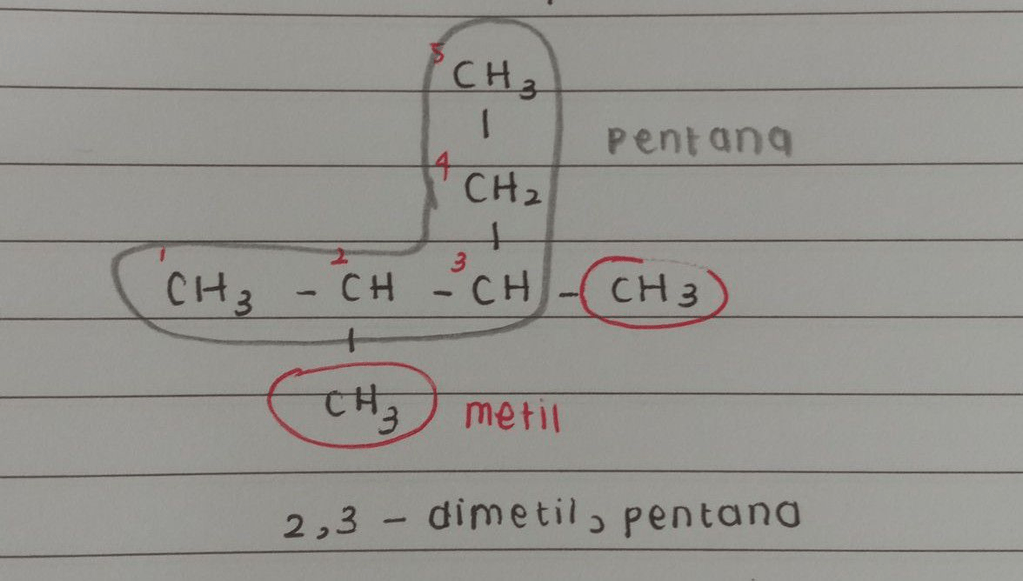 5 CH3
|
pentana
4 CH2
|
1 CH3 - 2 CH - 3 CH - CH3
|
CH3 metil
2,3 - dimetil, pentana